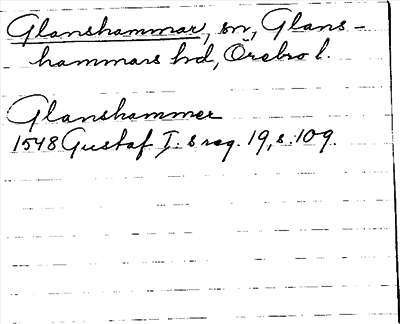 Glanshammar, sn, Glans-
hammars hd, Örebro l.
Glanshammer
1548 Gustaf I:s reg. 19, s. 109.